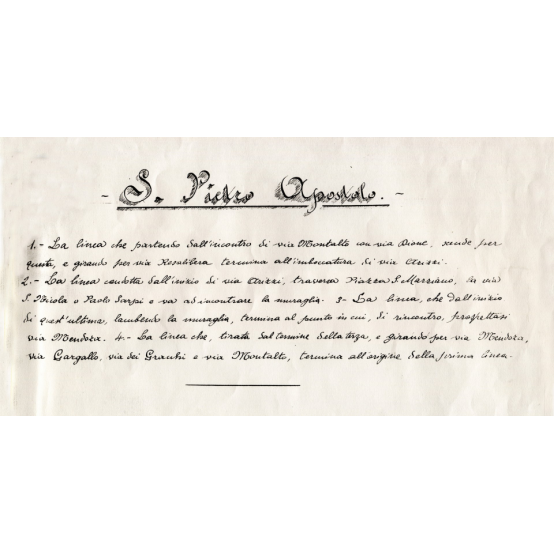 - S. Pietro Apostolo. -
1. - La linea che partendo dall'incontro di via Montalto con via Dione, scende per
questa, e girando per via Resalibera termina all'imboccatura di via Arizzi.
2. - La linea condotta dall'inizio di via Arizzi, traversa Piazza S. Marziano, in via
S. Privla o Paolo Sarpi e va ad incontrare la muraglia. 3 - La linea, che dall'inizio
di quest'ultima, lambendo la muraglia, termina al punto in cui, di rincontro, prospettasi
via Mendoza. 4. - La linea che, tirata dal termine della terza, e girando per via Mendoza,
via Gargallo, via dei Granchi e via Montalto, termina all'origine della prima linea.